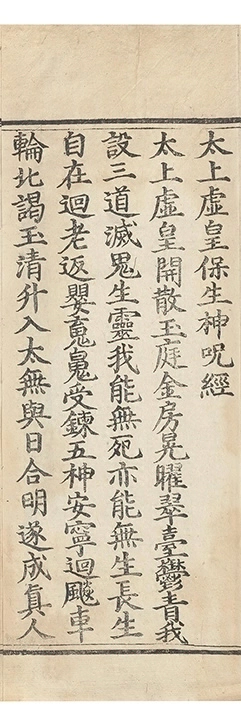 太上虛皇保生神呪經
太上虛皇開散玉庭金房晃曜翠臺鬱青我
設三道滅鬼生靈我能無死亦能無生長生
自在迴老返嬰䰟魄受鍊五神安寧迴飈車
輪北謁玉清升入太無與日合明遂成眞人